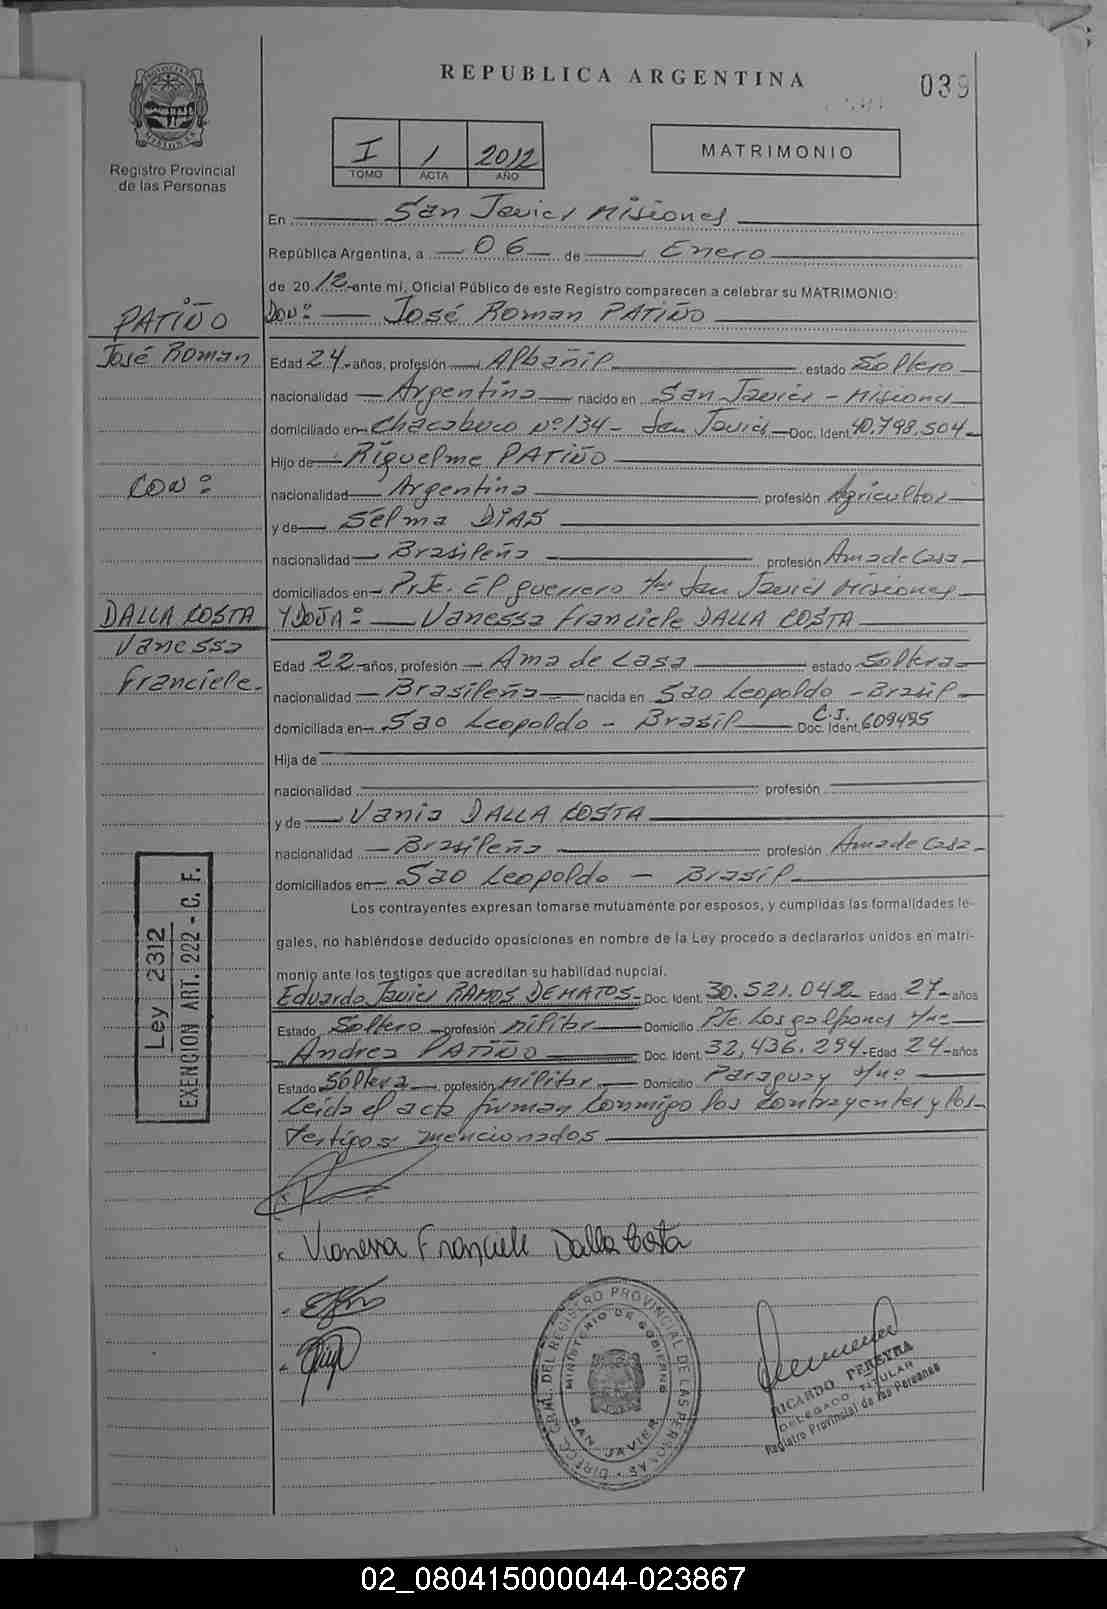 REPUBLICA ARGENTINA
039
PROVINCIA DE MISIONES
Registro Provincial
de las Personas
I 1 2012
TOMO ACTA AÑO
MATRIMONIO
En San Javier Misiones
República Argentina, a 06 de Enero
de 2012 ante mí, Oficial Público de este Registro comparecen a celebrar su MATRIMONIO:
PATIÑO
José Roman
CON:
DALLA COSTA
Vanessa
Franciele
DON: José Roman PATIÑO
Edad 24 años, profesión Albañil estado Soltero
nacionalidad Argentina nacido en San Javier - Misiones
domiciliado en Chacabuco Nº 134 - San Javier Doc. Ident. 40.798.504
Hijo de Riguelme PATIÑO
nacionalidad Argentina profesión Agricultor
y de Selma DIAS
nacionalidad Brasileña profesión Ama de Casa
domiciliados en Pje. El guerrero San Javier Misiones
Y DOÑA: Vanessa Franciele DALLA COSTA
Edad 22 años, profesión Ama de Casa estado Soltera
nacionalidad Brasileña nacida en Sao Leopoldo - Brasil
domiciliada en Sao Leopoldo - Brasil C.I. Doc. Ident. 609495
Hija de
nacionalidad profesión
y de Vania DALLA COSTA
nacionalidad Brasileña profesión Ama de Casa
domiciliados en Sao Leopoldo - Brasil
Los contrayentes expresan tomarse mutuamente por esposos, y cumplidas las formalidades le-
gales, no habiéndose deducido oposiciones en nombre de la Ley procedo a declararlos unidos en matri-
monio ante los testigos que acreditan su habilidad nupcial.
Eduardo Javier RAMOS DEMATOS Doc. Ident. 30.521.042 Edad 27 años
Estado Soltero profesión Militar Domicilio Pje. Los galpones
Andrea PATIÑO Doc. Ident. 32,436.294 Edad 24 años
Estado Soltera profesión Militar Domicilio Paraguay s/nº
Leida el acta firman Conmigo los Contrayentes y los
Testigos mencionados
Ley 2312
EXENCION ART. 222 - C. F.
Vanessa Franciele Dalla Costa
DIRECC. GRAL. DEL REGISTRO PROVINCIAL DE LAS PERSONAS
MINISTERIO DE GOBIERNO
SAN JAVIER
RICARDO PEREYRA
DELEGADO TITULAR
Registro Provincial de las Personas
02_080415000044-023867